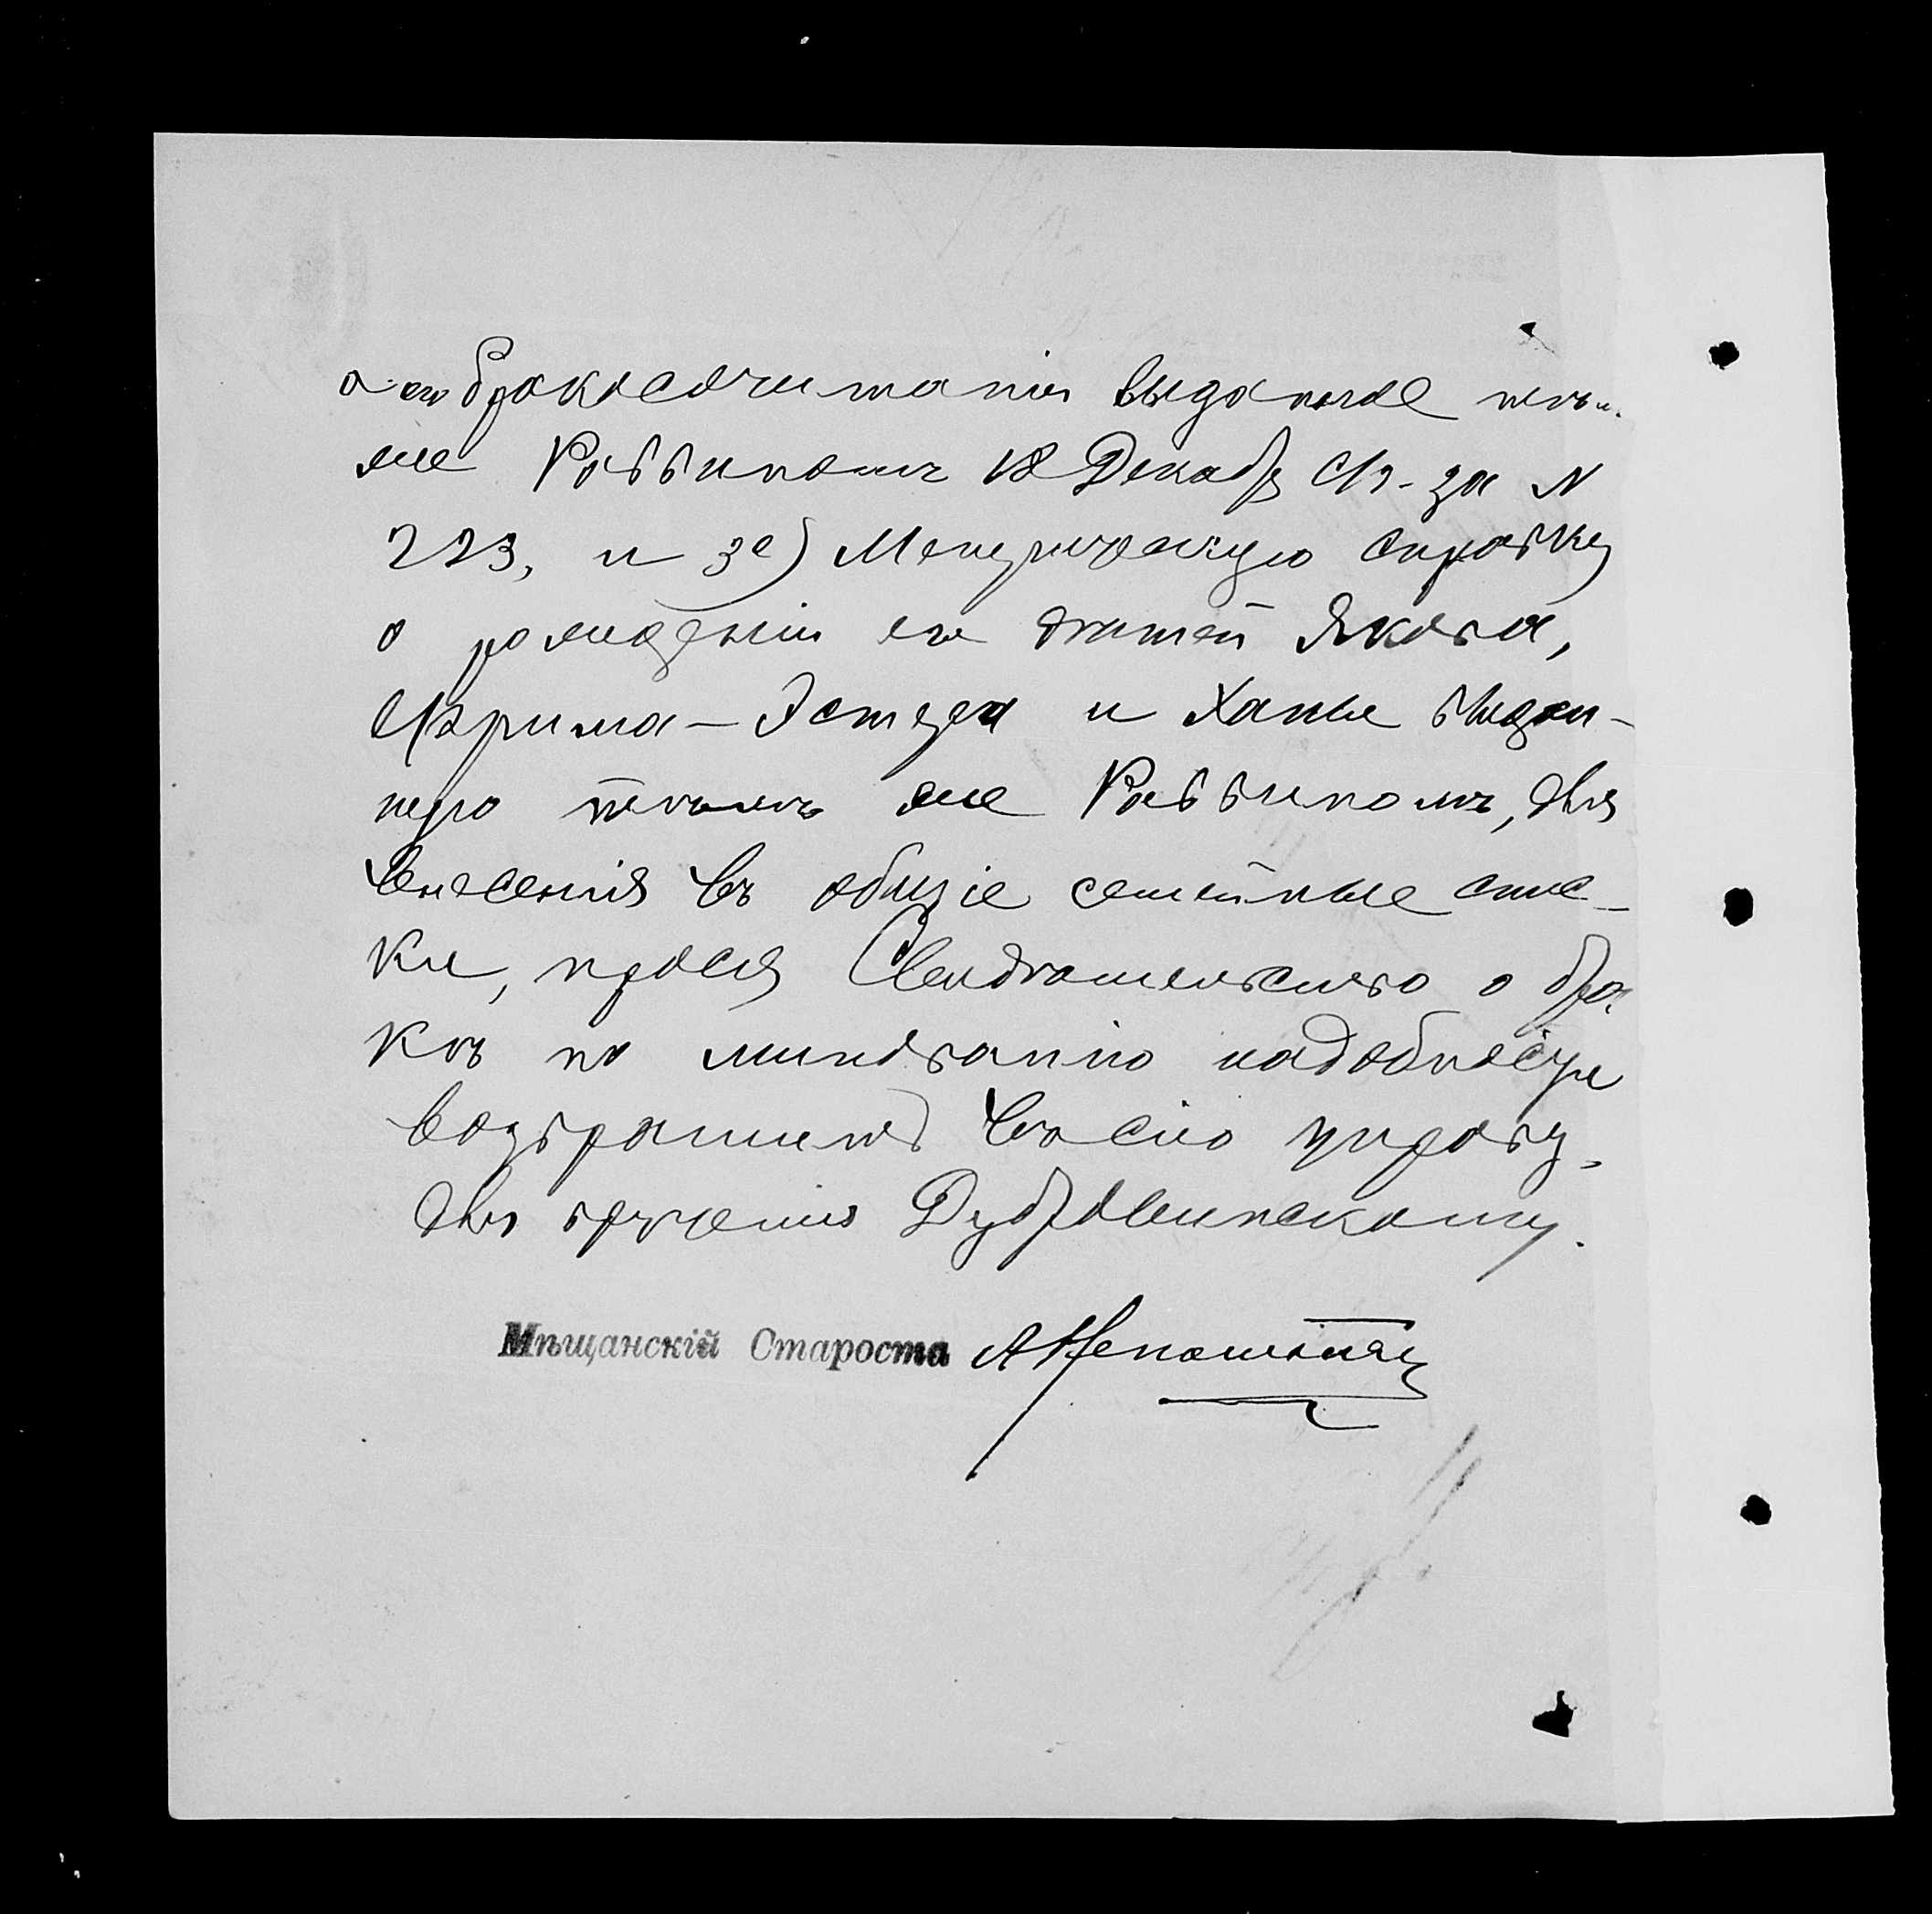 о его бракосочитаніи выданное тѣм
же Раввиномъ 18 Декабр с/г. за N
223, и 3е) Метрическую справку
о рожденіи его дѣтей Якова,
Ефрима-Эстера и Ханы выдан-
ную тѣмъ же Раввиномъ, для
внесенія въ общіе семейные спис-
ки, прося Свидѣтельство о бра
кѣ по минованію надобности
возвратить въ сію управу,
для врученія Дубровинскому.
Мѣщанскій Староста